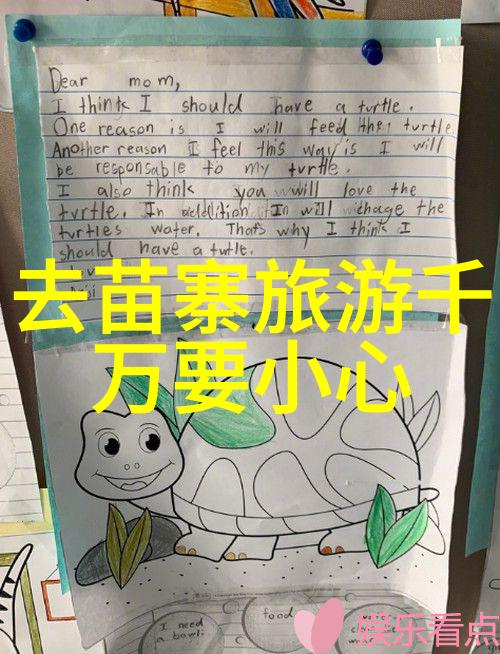 Dear mom,
I think I should have a turtle.
One reason is I will feed the turtle
Another reason I feel this way is I will
be responsable to my turtle.
I also think you will love the
turtle. In addition I will chage the
turtles water. That's why I think I
should have a turtle.
去苗寨旅游千
万要小心
I need
a bowl
food
娱乐看点